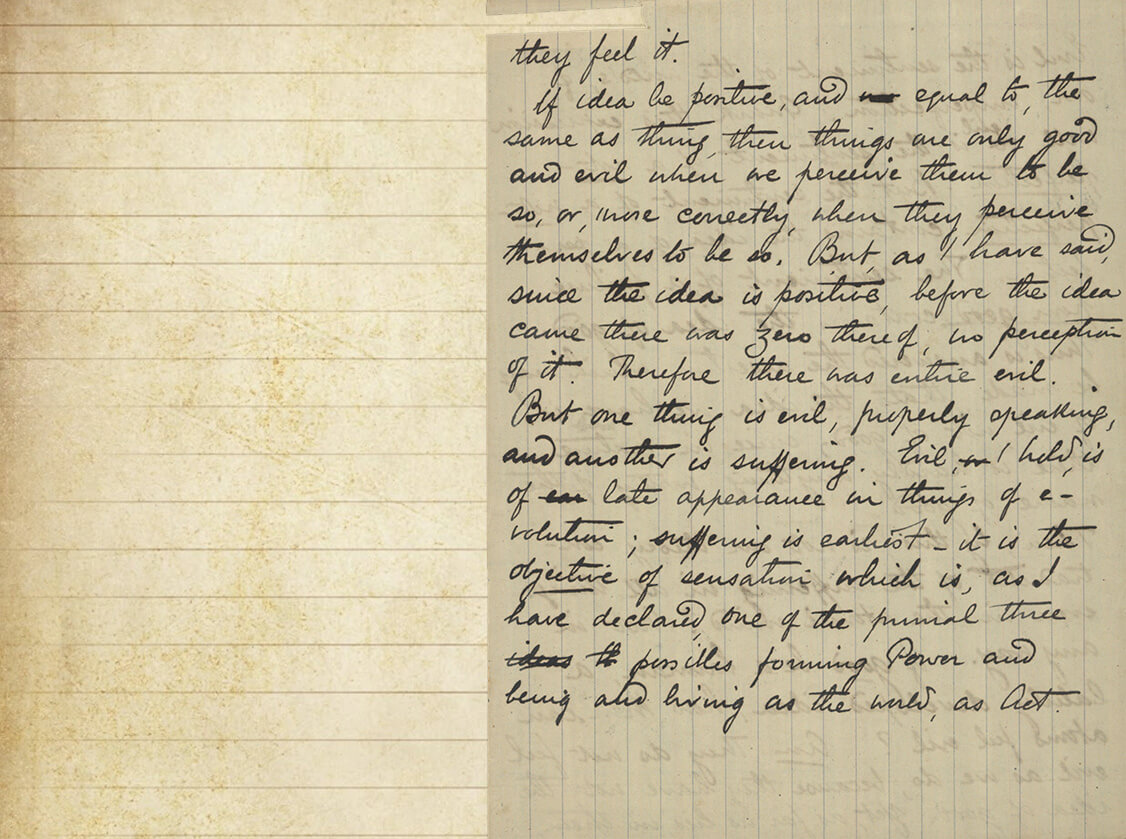 they feel it.
If idea be positive, and equal to, the
same as thing, then things are only good
and evil when we perceive them to be
so, or, more correctly, when they perceive
themselves to be so. But, as I have said,
since the idea is positive, before the idea
came there was zero thereof, no perception
of it. Therefore there was entire evil.
But one thing is evil, properly speaking,
and another is suffering. Evil, I hold, is
of late appearance in things of e-
volution; suffering is earliest – it is the
objective of sensation which is, as I
have declared, one of the primal three
ideas possibles forming Power and
being and living as the world, as Act.